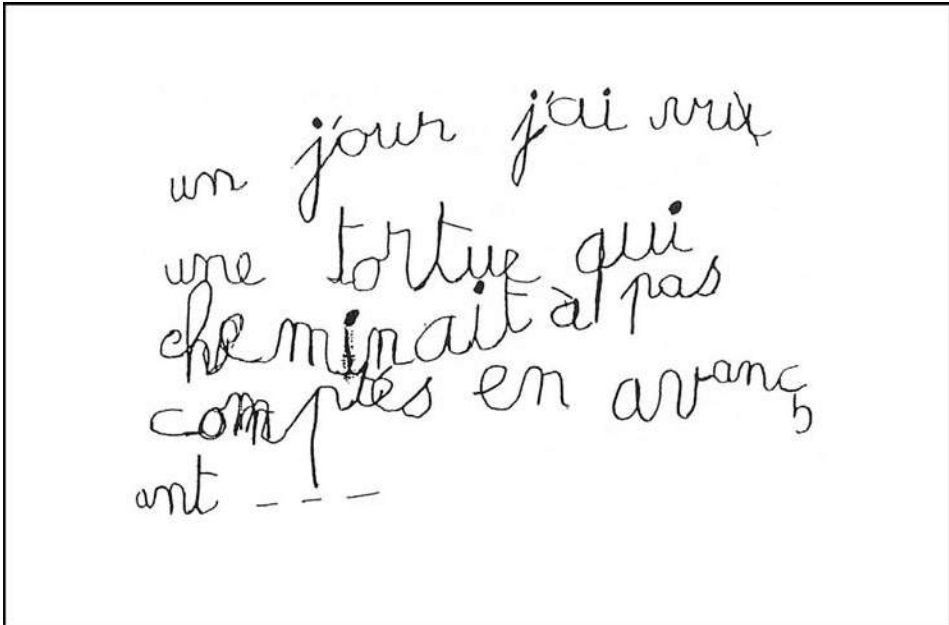 un jour j'ai vu
une tortue qui
cheminait à pas
comptés en avanç
ant _ _ _